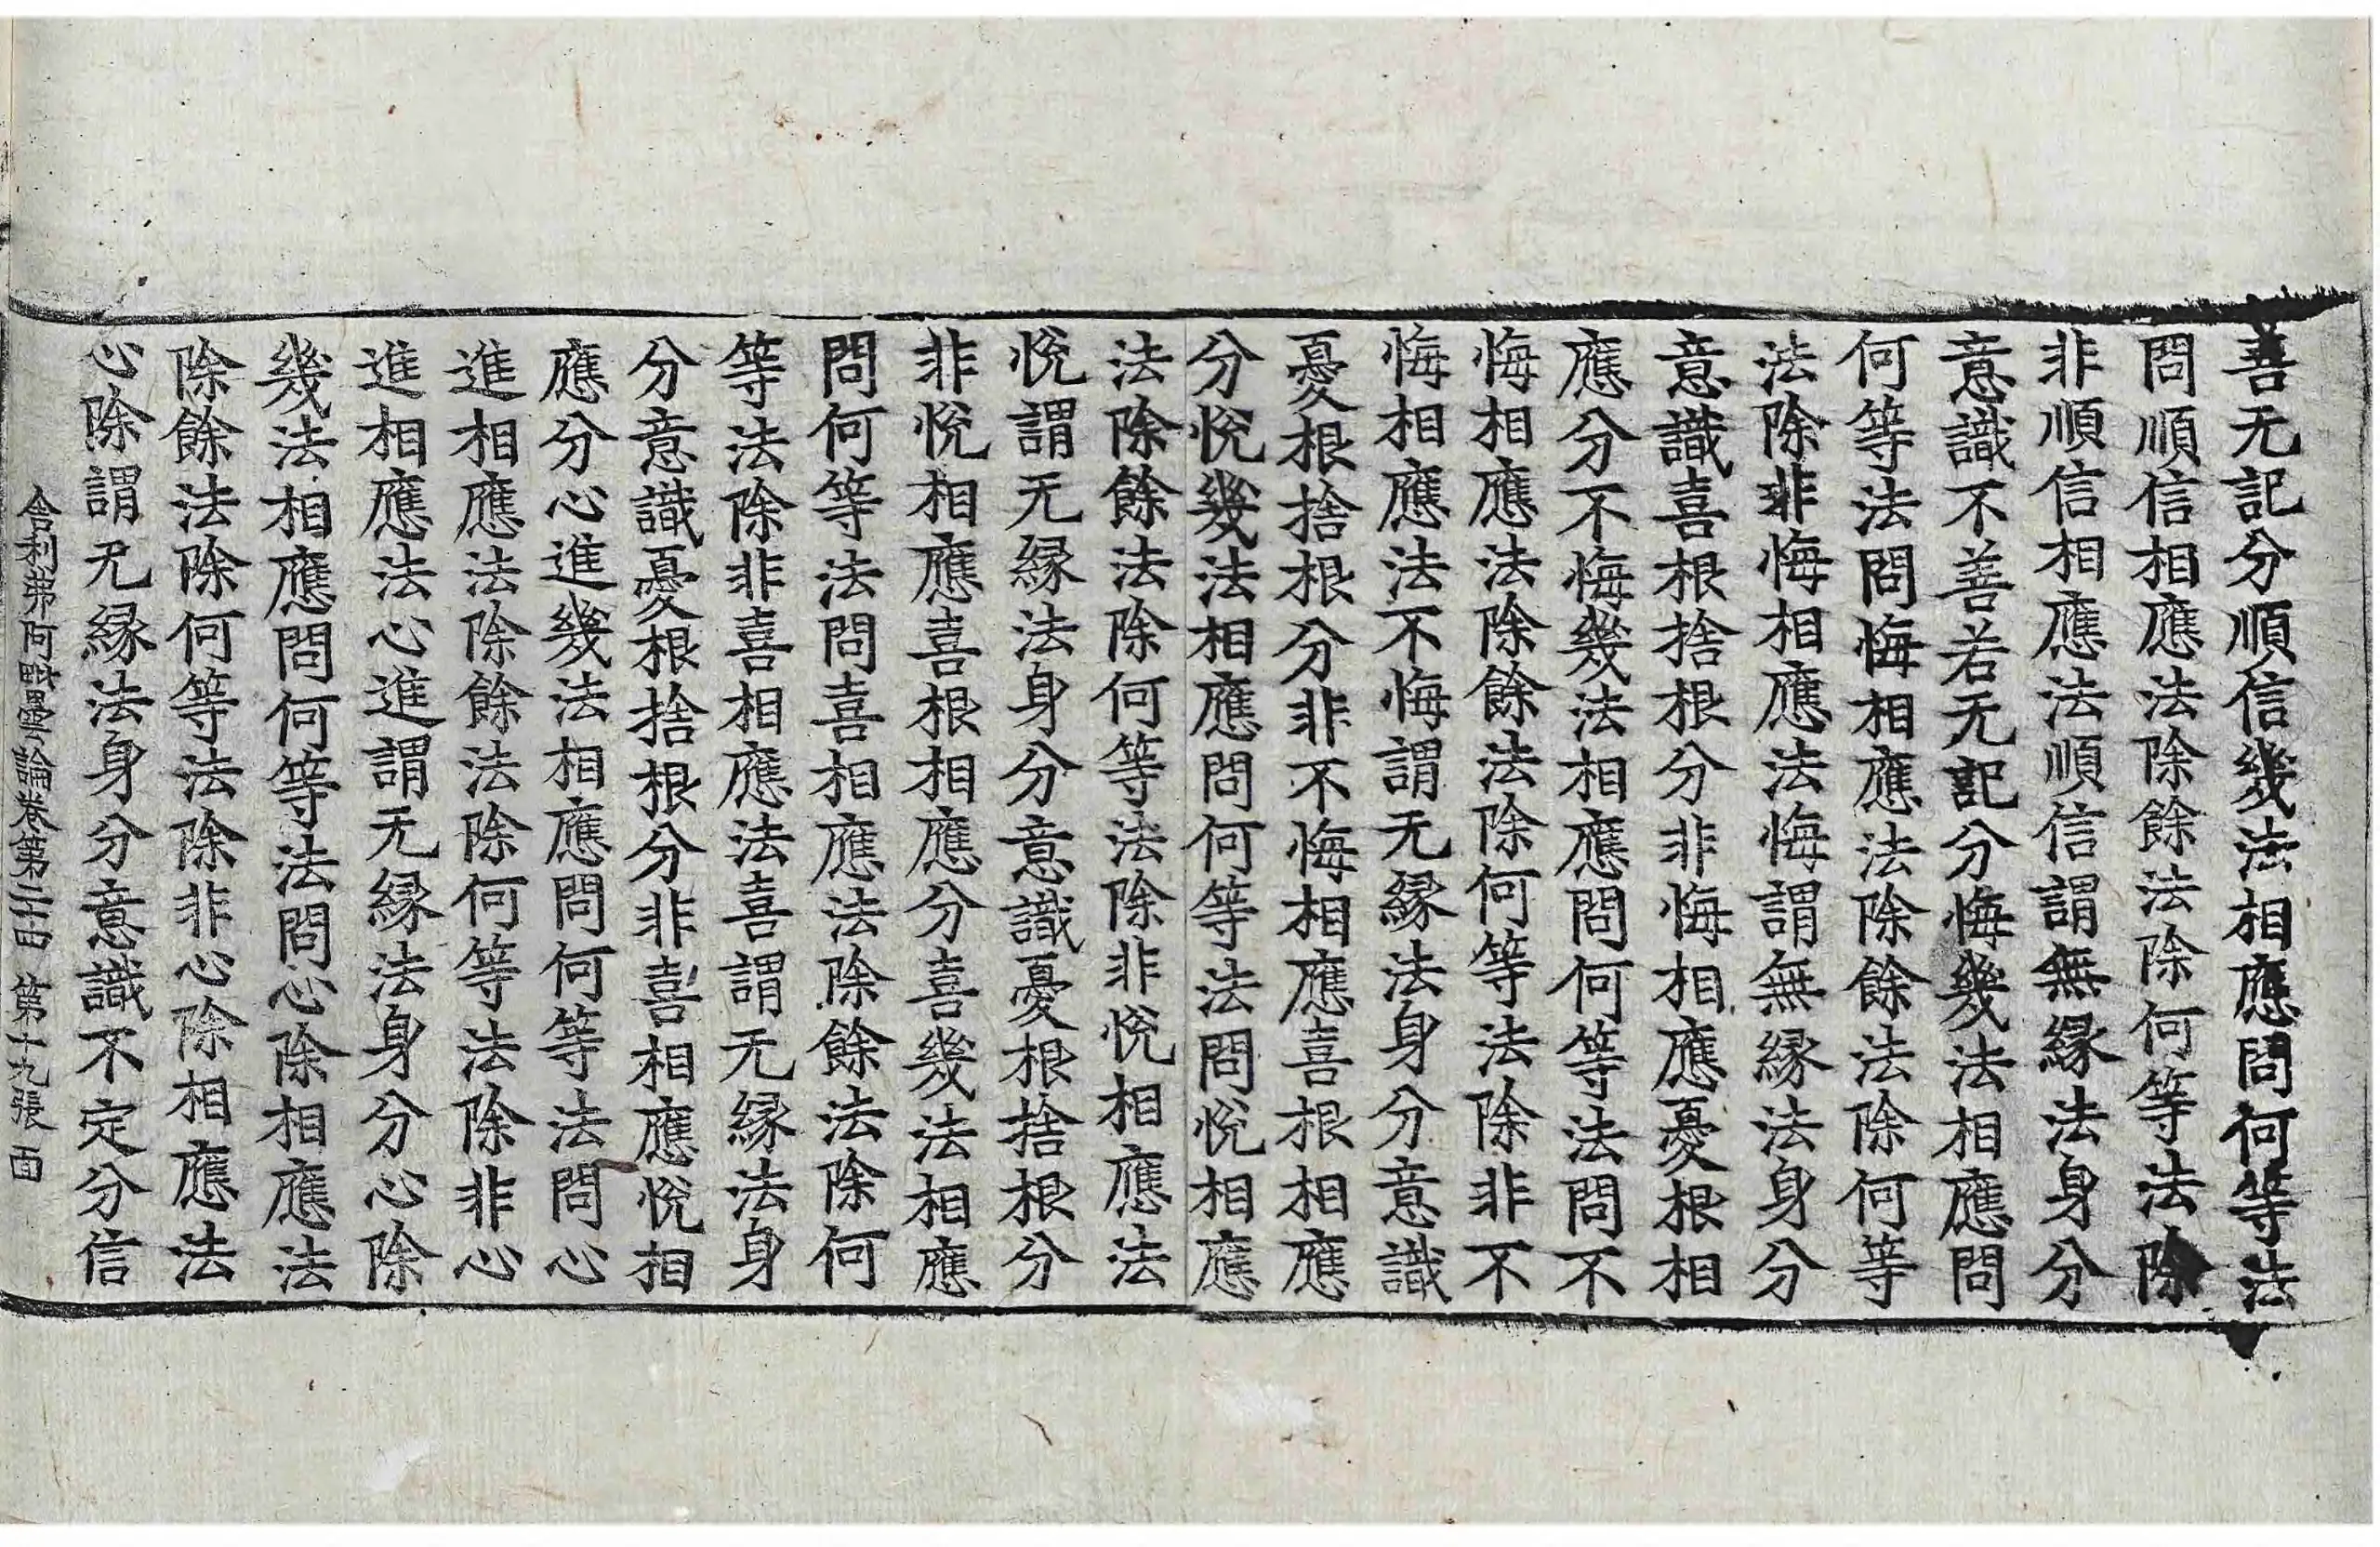 善无記分順信幾法相應問何等法
問順信相應法除餘法除何等法除
非順信相應法順信謂無緣法身分
意識不善若无記分悔幾法相應問
何等法問悔相應法除餘法除何等
法除非悔相應法悔謂無緣法身分
意識喜根捨根分非悔相應憂根相
應分不悔幾法相應問何等法問不
悔相應法除餘法除何等法除非不
悔相應法不悔謂无緣法身分意識
憂根捨根分非不悔相應喜根相應
分悅幾法相應問何等法問悅相應
法除餘法除何等法除非悅相應法
悅謂无緣法身分意識憂根捨根分
非悅相應喜根相應分喜幾法相應
問何等法問喜相應法除餘法除何
等法除非喜相應法喜謂无緣法身
分意識憂根捨根分非喜相應悅相
應分心進幾法相應問何等法問心
進相應法除餘法除何等法除非心
進相應法心進謂无緣法身分心除
幾法相應問何等法問心除相應法
除餘法除何等法除非心除相應法
心除謂无緣法身分意識不定分信
舍利弗阿毗曇論卷第二十四 第十九張 面